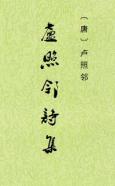 〔唐〕卢照邻
盧照鄰詩集